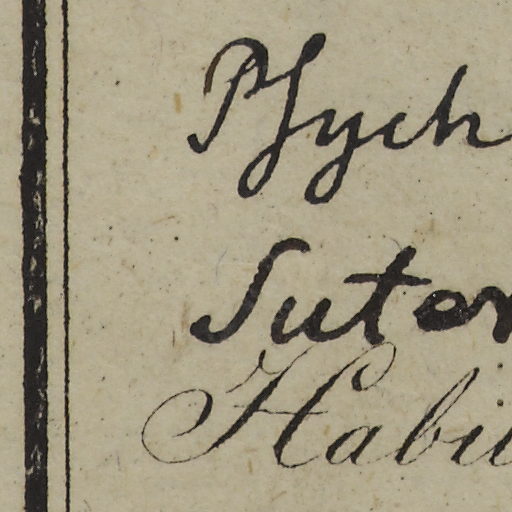 Psych
Suter
Habi